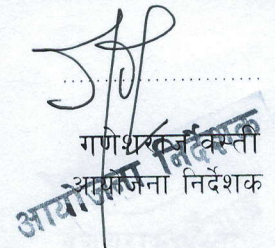 गणेशराज वस्ती
आयोजना निर्देशक
आयोजना निर्देशक